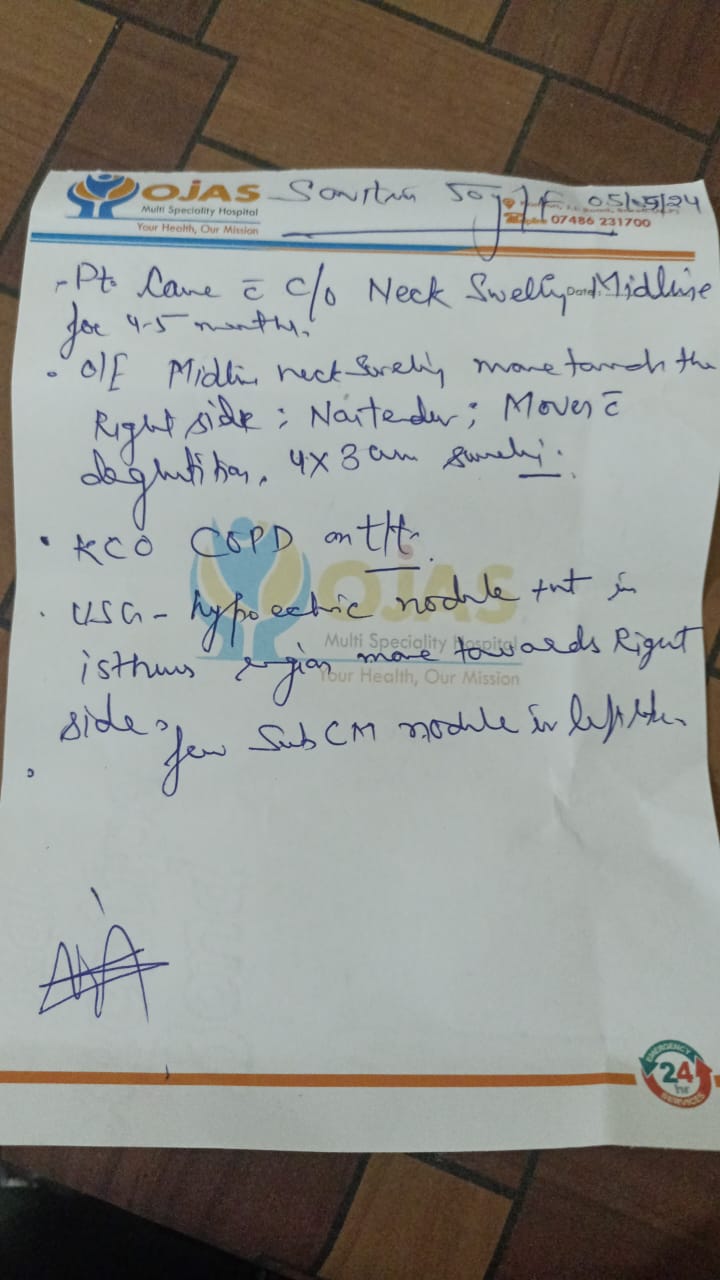 OJAS
Multi Speciality Hospital
Your Health, Our Mission
50y/F 05/05/24
07486 231700
- Pt. Came c̄ C/o Neck Swelling Midline
for 4-5 months.
• O/E Midline neck Swelling more towards the
Right side ; Nontender ; Moves c̄
deglutition. 4x3cm swelling.
• KCO COPD on t/t.
OJAS
Multi Speciality Hospital
Your Health, Our Mission
• USG - hypoechoic nodule +nt in
isthmus region more towards Right
side.
few Sub CM nodule in left
EMERGENCY
24
hr
SERVICES